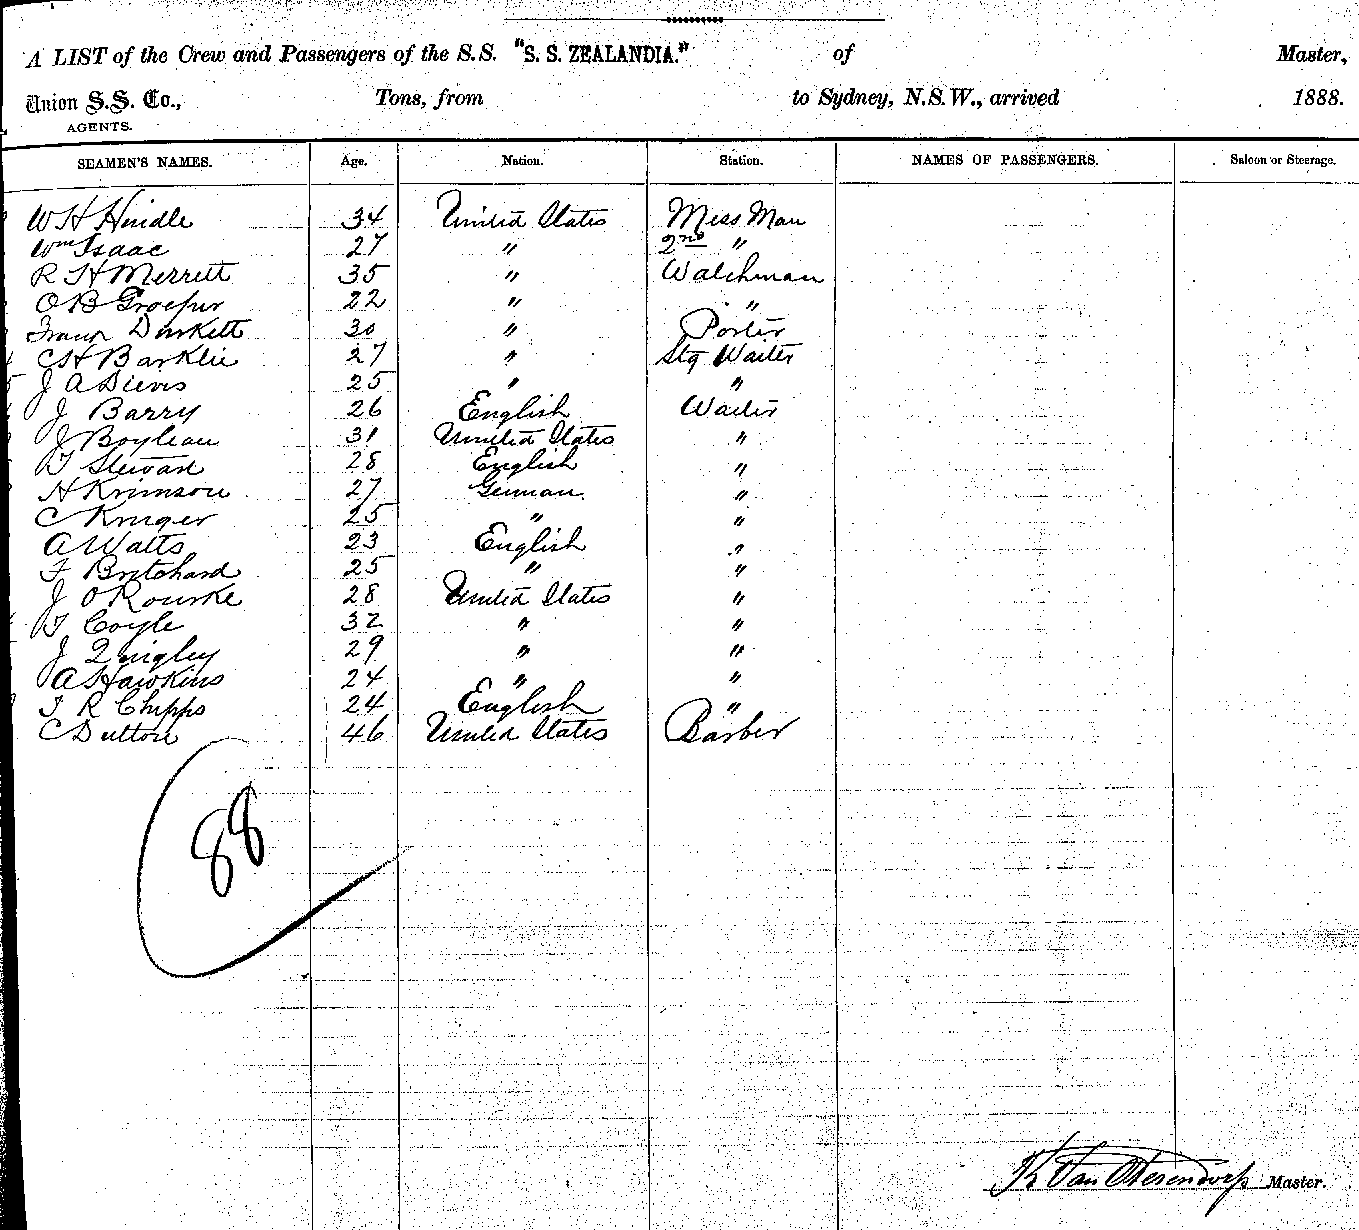 A LIST of the Crew and Passengers of the S.S. "S. S. ZEALANDIA." of Master,
Union S.S. Co., Tons, from to Sydney, N.S.W., arrived 1888.
AGENTS.
SEAMEN'S NAMES. Age. Nation. Station. NAMES OF PASSENGERS. Saloon or Steerage.
W H Hindle 34 United States Mess Man
Wm Isaac 27 " 2nd "
R H Merrett 35 " Watchman
O B 22 " "
Durkett 30 " Porter
C H Barklie 27 " Stg Waiter
J A 25 " "
J Barry 26 English Waiter
J Boyleau 31 United States "
T Stewart 28 English "
H Krimson 27 German "
C Kruger 25 " "
A Watts 23 English "
F Britchard 25 " "
J O'Rourke 28 United States "
T Coyle 32 " "
J Quigley 29 " "
A Hawkins 24 " "
T R Chipps 24 English "
C Dutton 46 United States Barber
88
Van Oterendorp Master.